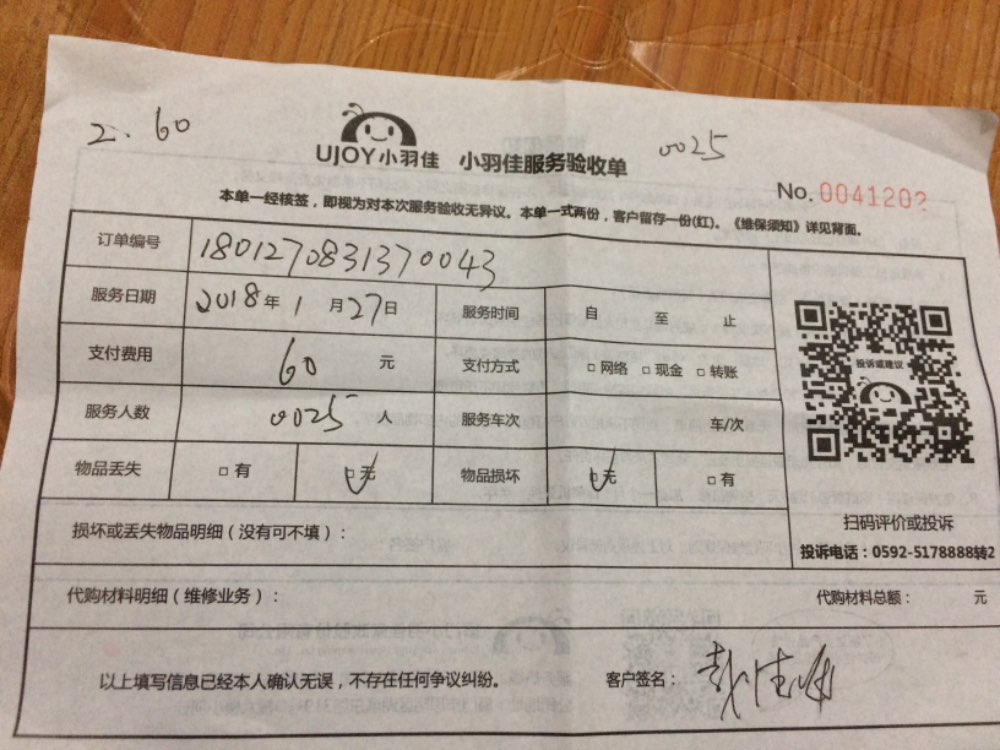 2.60
UJOY小羽佳 小羽佳服务验收单
0025
No. 0041202
本单一经核签，即视为对本次服务验收无异议。本单一式两份，客户留存一份(红)。《维保须知》详见背面。
订单编号 180127083137 0043
服务日期 2018年1月27日 服务时间 自 至 止
支付费用 60 元 支付方式 □网络 □现金 □转账
服务人数 0025 人 服务车次 车/次
物品丢失 □有 □无 物品损坏 □无 □有
投诉或建议
扫码评价或投诉
投诉电话：0592-5178888转2
损坏或丢失物品明细（没有可不填）：
代购材料明细（维修业务）： 代购材料总额： 元
以上填写信息已经本人确认无误，不存在任何争议纠纷。 客户签名：